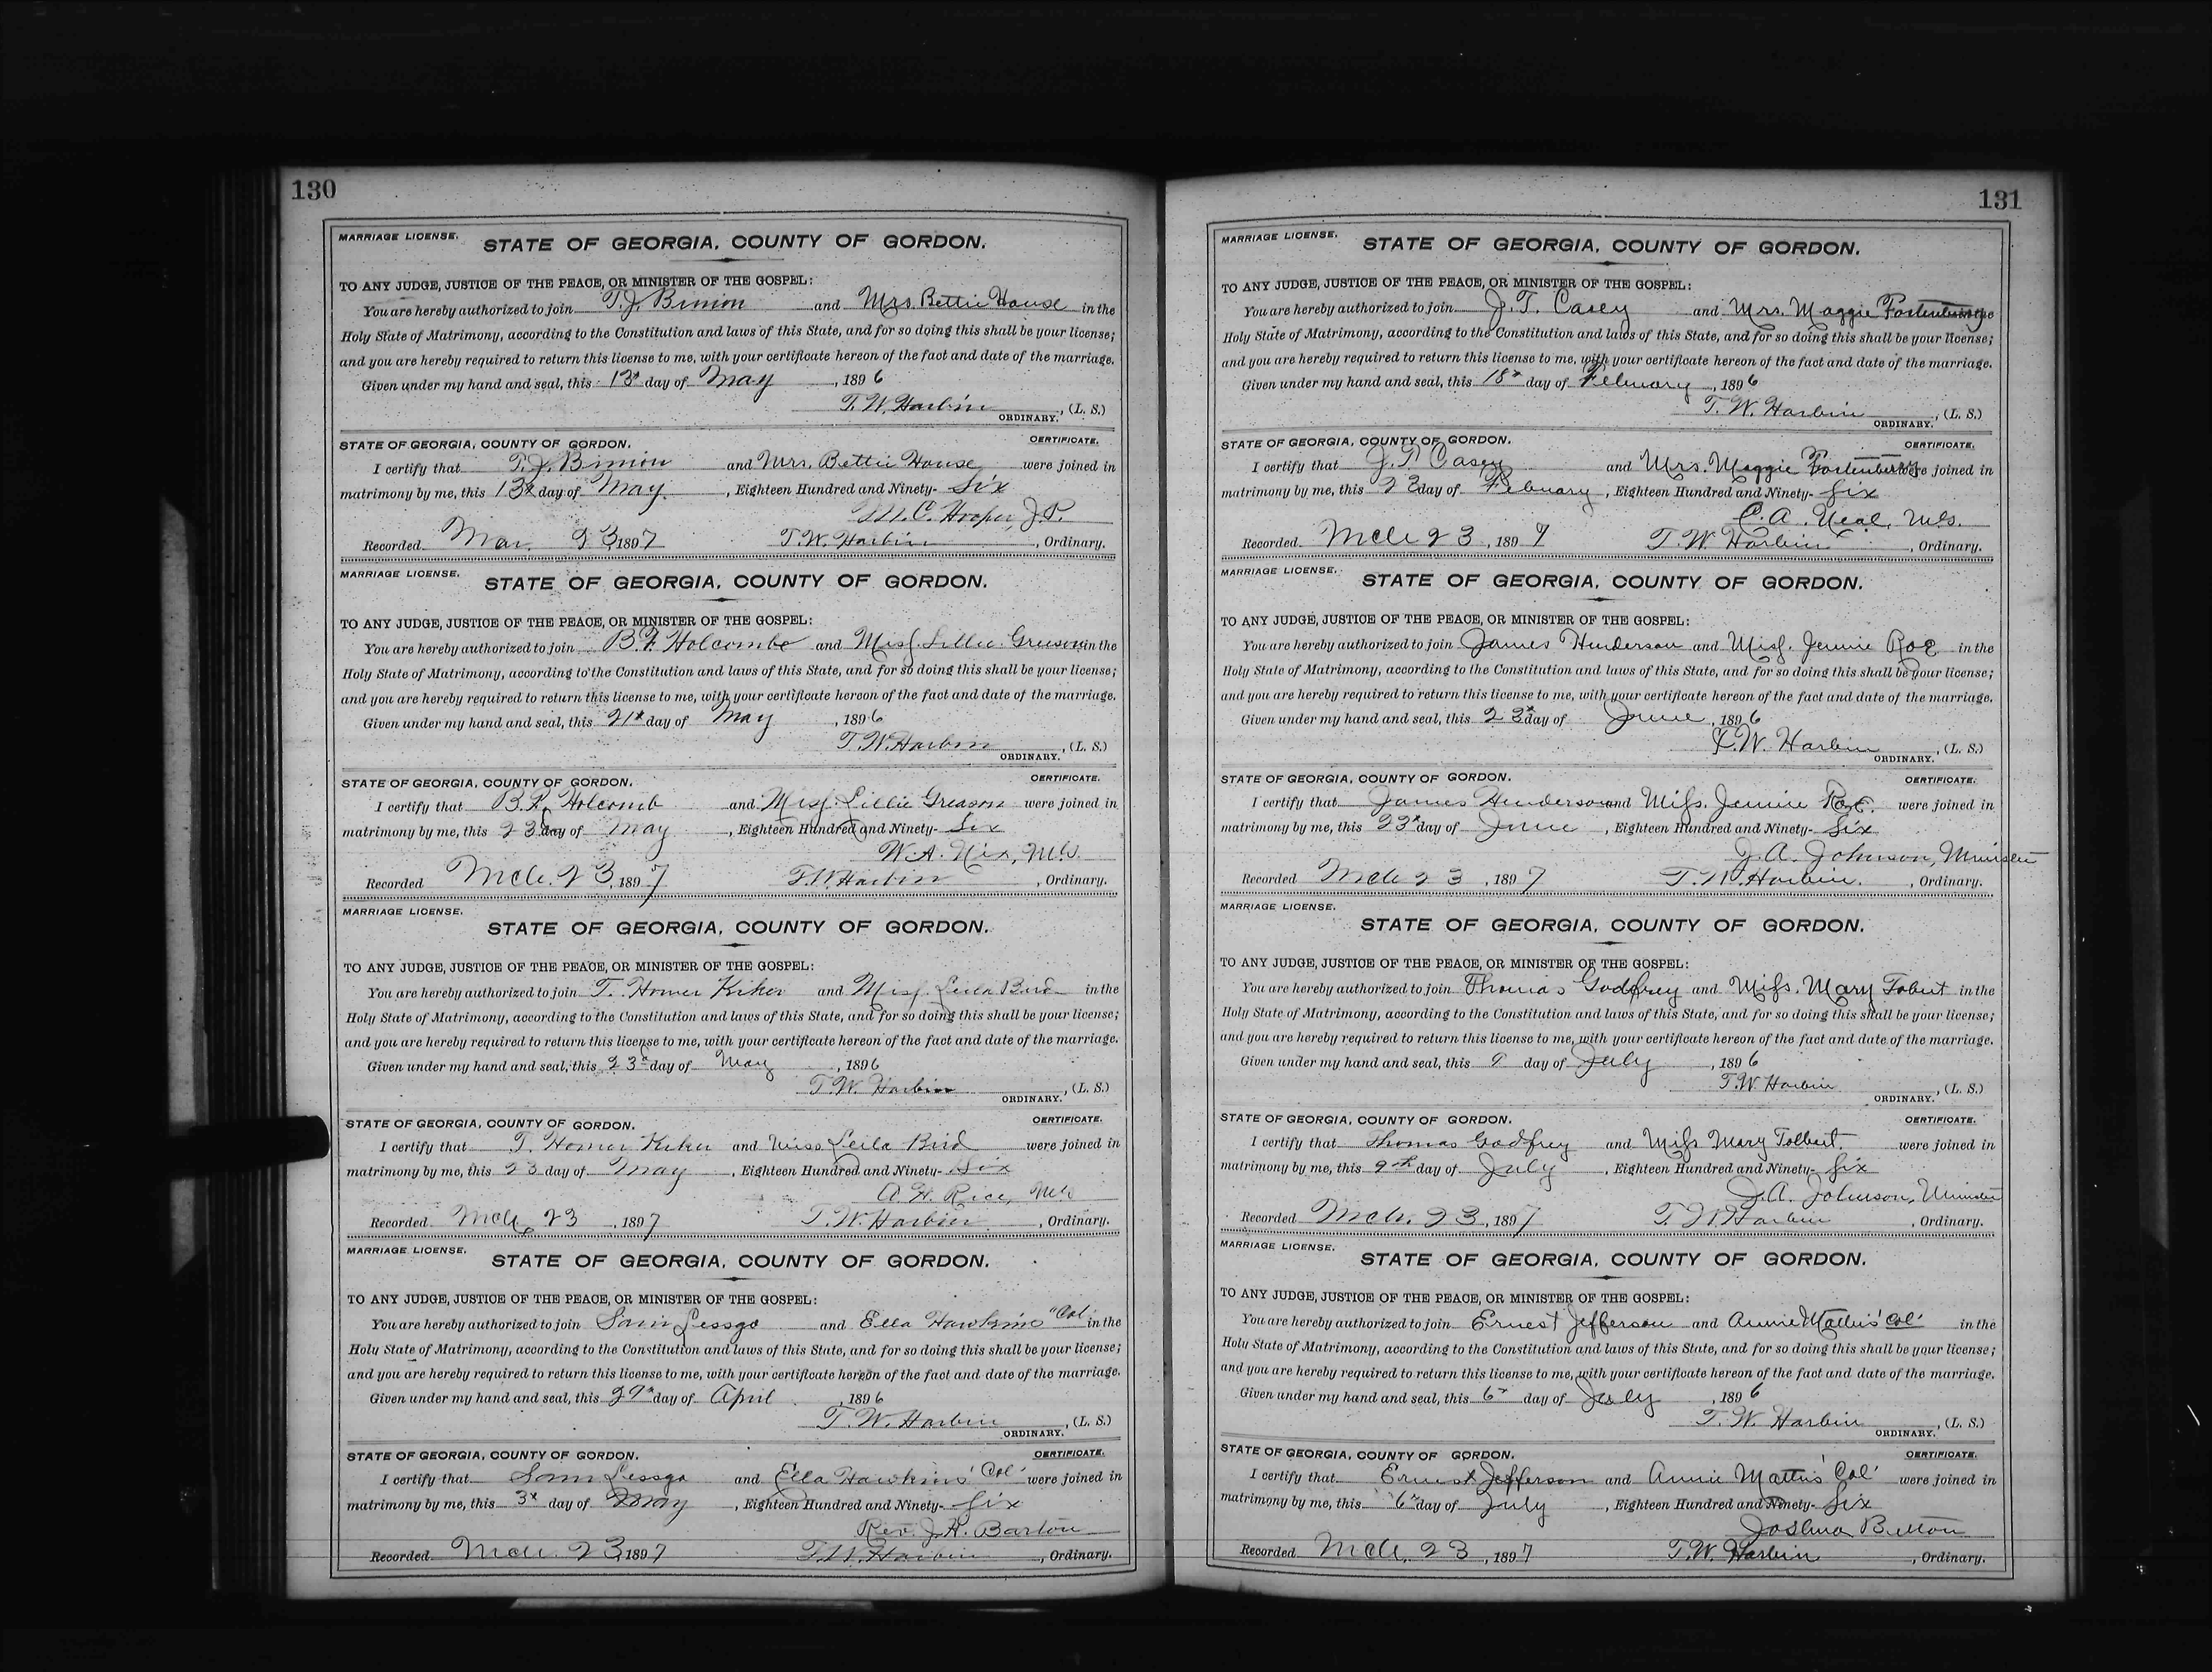 130
MARRIAGE LICENSE. STATE OF GEORGIA, COUNTY OF GORDON.
TO ANY JUDGE, JUSTICE OF THE PEACE, OR MINISTER OF THE GOSPEL:
You are hereby authorized to join T. J. Binion and Mrs. Bettie House in the
Holy State of Matrimony, according to the Constitution and laws of this State, and for so doing this shall be your license;
and you are hereby required to return this license to me, with your certificate hereon of the fact and date of the marriage.
Given under my hand and seal, this 13th day of May, 1896
T. W. Harbin, (L. S.)
ORDINARY.
STATE OF GEORGIA, COUNTY OF GORDON. CERTIFICATE.
I certify that T. J. Binion and Mrs. Bettie House were joined in
matrimony by me, this 13th day of May, Eighteen Hundred and Ninety-Six
M. C. Hooper, J. P.
Recorded Mar. 23 1897 T. W. Harbin, Ordinary.
MARRIAGE LICENSE. STATE OF GEORGIA, COUNTY OF GORDON.
TO ANY JUDGE, JUSTICE OF THE PEACE, OR MINISTER OF THE GOSPEL:
You are hereby authorized to join B. F. Holcombe and Miss. Lillie Greeson in the
Holy State of Matrimony, according to the Constitution and laws of this State, and for so doing this shall be your license;
and you are hereby required to return this license to me, with your certificate hereon of the fact and date of the marriage.
Given under my hand and seal, this 21st day of May, 1896
T. W. Harbin, (L. S.)
ORDINARY.
STATE OF GEORGIA, COUNTY OF GORDON. CERTIFICATE.
I certify that B. F. Holcomb and Miss. Lillie Greason were joined in
matrimony by me, this 23d day of May, Eighteen Hundred and Ninety-Six
W. A. Nix, M.G.
Recorded Mch. 23, 1897 T. W. Harbin, Ordinary.
MARRIAGE LICENSE. STATE OF GEORGIA, COUNTY OF GORDON.
TO ANY JUDGE, JUSTICE OF THE PEACE, OR MINISTER OF THE GOSPEL:
You are hereby authorized to join T. Homer Kiker and Miss. Leila Bird in the
Holy State of Matrimony, according to the Constitution and laws of this State, and for so doing this shall be your license;
and you are hereby required to return this license to me, with your certificate hereon of the fact and date of the marriage.
Given under my hand and seal, this 23d day of May, 1896
T. W. Harbin, (L. S.)
ORDINARY.
STATE OF GEORGIA, COUNTY OF GORDON. CERTIFICATE.
I certify that T. Homer Kiker and Miss Leila Bird were joined in
matrimony by me, this 23 day of May, Eighteen Hundred and Ninety-Six
A. H. Rice, M.G.
Recorded Mch 23, 1897 T. W. Harbin, Ordinary.
MARRIAGE LICENSE. STATE OF GEORGIA, COUNTY OF GORDON.
TO ANY JUDGE, JUSTICE OF THE PEACE, OR MINISTER OF THE GOSPEL:
You are hereby authorized to join Sam Lessgo and Ella Hawkins "Col" in the
Holy State of Matrimony, according to the Constitution and laws of this State, and for so doing this shall be your license;
and you are hereby required to return this license to me, with your certificate hereon of the fact and date of the marriage.
Given under my hand and seal, this 29th day of April, 1896
T. W. Harbin, (L. S.)
ORDINARY.
STATE OF GEORGIA, COUNTY OF GORDON. CERTIFICATE.
I certify that Sam Lessgo and Ella Hawkins 'Col' were joined in
matrimony by me, this 3d day of May, Eighteen Hundred and Ninety-Six
Rev. J. H. Barton
Recorded Mch. 23 1897 T. W. Harbin, Ordinary.
131
MARRIAGE LICENSE. STATE OF GEORGIA, COUNTY OF GORDON.
TO ANY JUDGE, JUSTICE OF THE PEACE, OR MINISTER OF THE GOSPEL:
You are hereby authorized to join J. T. Casey and Mrs. Maggie Fortenberry in the
Holy State of Matrimony, according to the Constitution and laws of this State, and for so doing this shall be your license;
and you are hereby required to return this license to me, with your certificate hereon of the fact and date of the marriage.
Given under my hand and seal, this 18th day of February, 1896
T. W. Harbin, (L. S.)
ORDINARY.
STATE OF GEORGIA, COUNTY OF GORDON. CERTIFICATE.
I certify that J. T. Casey and Mrs. Maggie Fortenberry were joined in
matrimony by me, this 23 day of February, Eighteen Hundred and Ninety-Six
C. A. Neal, M.G.
Recorded Mch 23, 1897 T. W. Harbin, Ordinary.
MARRIAGE LICENSE. STATE OF GEORGIA, COUNTY OF GORDON.
TO ANY JUDGE, JUSTICE OF THE PEACE, OR MINISTER OF THE GOSPEL:
You are hereby authorized to join James Henderson and Miss. Jennie Roe in the
Holy State of Matrimony, according to the Constitution and laws of this State, and for so doing this shall be your license;
and you are hereby required to return this license to me, with your certificate hereon of the fact and date of the marriage.
Given under my hand and seal, this 23d day of June, 1896
T. W. Harbin, (L. S.)
ORDINARY.
STATE OF GEORGIA, COUNTY OF GORDON. CERTIFICATE.
I certify that James Henderson and Miss. Jennie Roe were joined in
matrimony by me, this 23d day of June, Eighteen Hundred and Ninety-Six
J. A. Johnson, Minister
Recorded Mch 23, 1897 T. W. Harbin, Ordinary.
MARRIAGE LICENSE.
STATE OF GEORGIA, COUNTY OF GORDON.
TO ANY JUDGE, JUSTICE OF THE PEACE, OR MINISTER OF THE GOSPEL:
You are hereby authorized to join Thomas Godfrey and Miss. Mary Tobut in the
Holy State of Matrimony, according to the Constitution and laws of this State, and for so doing this shall be your license;
and you are hereby required to return this license to me, with your certificate hereon of the fact and date of the marriage.
Given under my hand and seal, this 9 day of July, 1896
T. W. Harbin, (L. S.)
ORDINARY.
STATE OF GEORGIA, COUNTY OF GORDON. CERTIFICATE.
I certify that Thomas Godfrey and Miss Mary Tolbert were joined in
matrimony by me, this 9th day of July, Eighteen Hundred and Ninety-Six
J. A. Johnson, Minister
Recorded Mch. 23, 1897 T. W. Harbin, Ordinary.
MARRIAGE LICENSE.
STATE OF GEORGIA, COUNTY OF GORDON.
TO ANY JUDGE, JUSTICE OF THE PEACE, OR MINISTER OF THE GOSPEL:
You are hereby authorized to join Ernest Jefferson and Annie Mattis 'Col' in the
Holy State of Matrimony, according to the Constitution and laws of this State, and for so doing this shall be your license;
and you are hereby required to return this license to me, with your certificate hereon of the fact and date of the marriage.
Given under my hand and seal, this 6th day of July, 1896
T. W. Harbin, (L. S.)
ORDINARY.
STATE OF GEORGIA, COUNTY OF GORDON. CERTIFICATE.
I certify that Ernest Jefferson and Annie Mattis 'Col' were joined in
matrimony by me, this 6th day of July, Eighteen Hundred and Ninety-Six
Joshua Button
Recorded Mch. 23, 1897 T. W. Harbin, Ordinary.